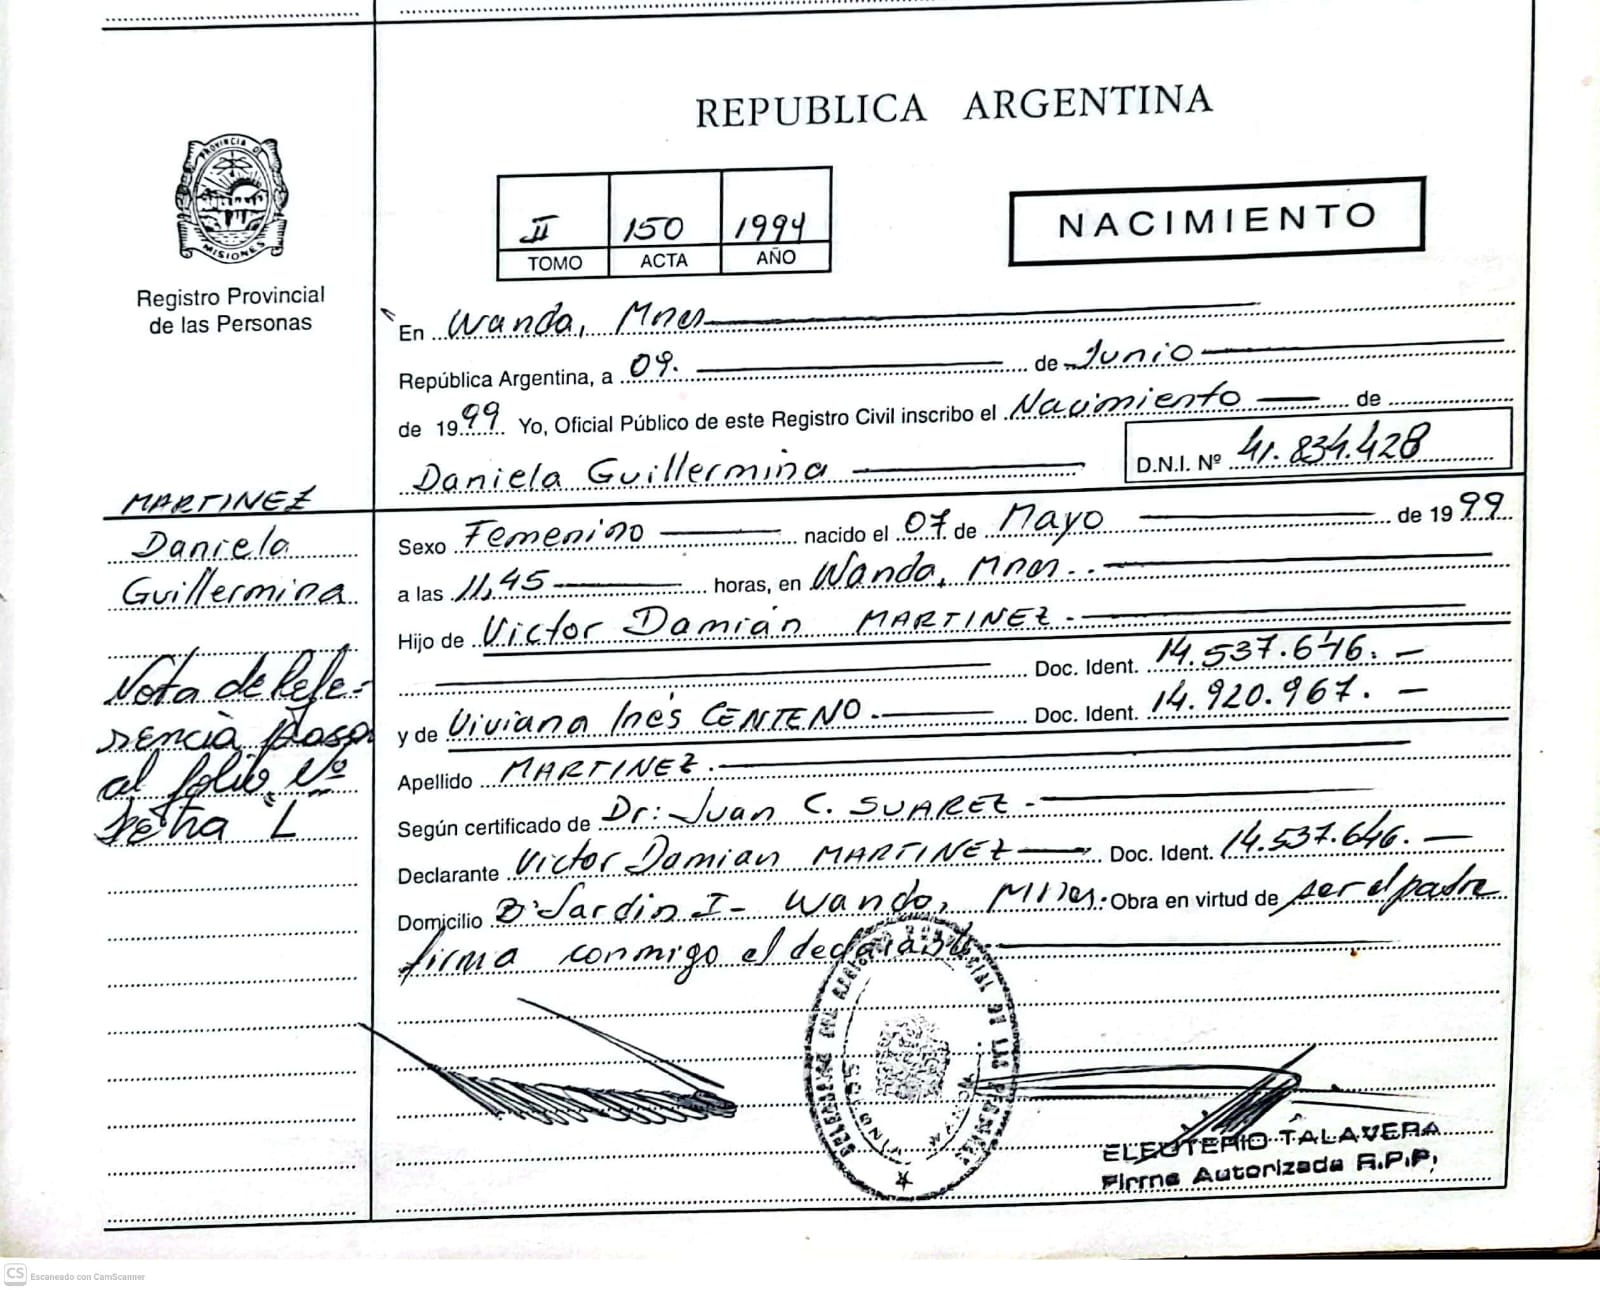 REPUBLICA ARGENTINA
PROVINCIA DE
MISIONES
Registro Provincial
de las Personas
II 150 1994
TOMO ACTA AÑO
NACIMIENTO
En Wanda, Mnes
República Argentina, a 09. de Junio
de 1999 Yo, Oficial Público de este Registro Civil inscribo el Nacimiento de
Daniela Guillermina D.N.I. Nº 41.834.428
MARTINEZ
Daniela
Guillermina
Nota de Refe-
rencia pasa
al folio Nº
letra "L
Sexo Femenino nacido el 07 de Mayo de 1999
a las 11,45 horas, en Wanda, Mnes.
Hijo de Victor Damián MARTINEZ.
Doc. Ident. 14.537.646.
y de Viviana Inés CENTENO. Doc. Ident. 14.920.967.
Apellido MARTINEZ.
Según certificado de Dr: Juan C. SUAREZ
Declarante Victor Damian MARTINEZ Doc. Ident. 14.537.646.
Domicilio Bº Jardin I - Wanda, Mnes. Obra en virtud de ser el padre
firma conmigo el declarante
ELEUTERIO TALAVERA
Firma Autorizada R.P.P.
CS Escaneado con CamScanner